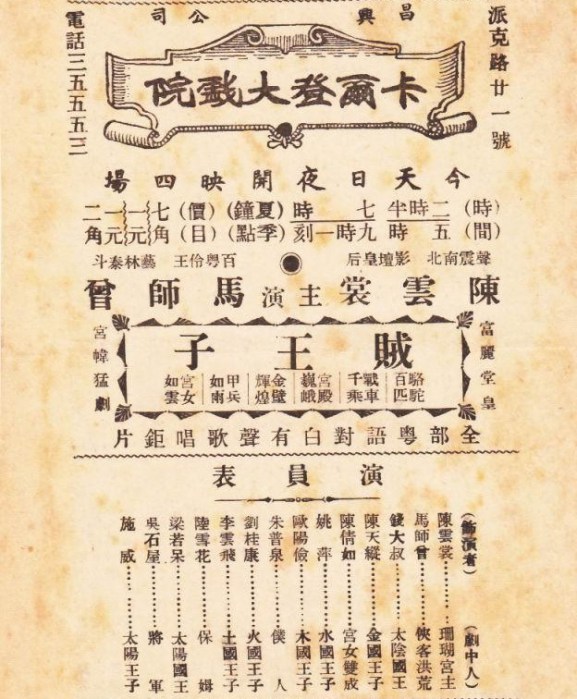 昌興公司
派克路廿一號
電話三五五五三
卡爾登大戲院
今天日夜開映四場
(時)二時半 七時 (夏鐘)(價)七一一二
(間)五時 九時一刻 (季點)(目)角元元角
聲震南北 影壇皇后 百粵伶王 藝林泰斗
陳雲裳主演馬師曾
富麗堂皇
賊王子
駱駝百匹 戰車千乘 宮殿巍峨 金璧輝煌 甲兵如雨 宮女如雲
宮幃猛劇
全部粵語對白有聲歌唱鉅片
演員表
(飾演者) (劇中人)
陳雲裳……珊瑚宮主
馬師曾……俠客洪荒
錢大叔……太陰國王
陳天縱……金國王子
陳倩如……宮女雙成
姚萍……水國王子
歐陽儉……木國王子
朱普泉……僕人
劉桂康……火國王子
李雲飛……土國王子
陸雪花……保姆
梁若呆……太陽國王
吳石屋……將軍
施威……太陽王子